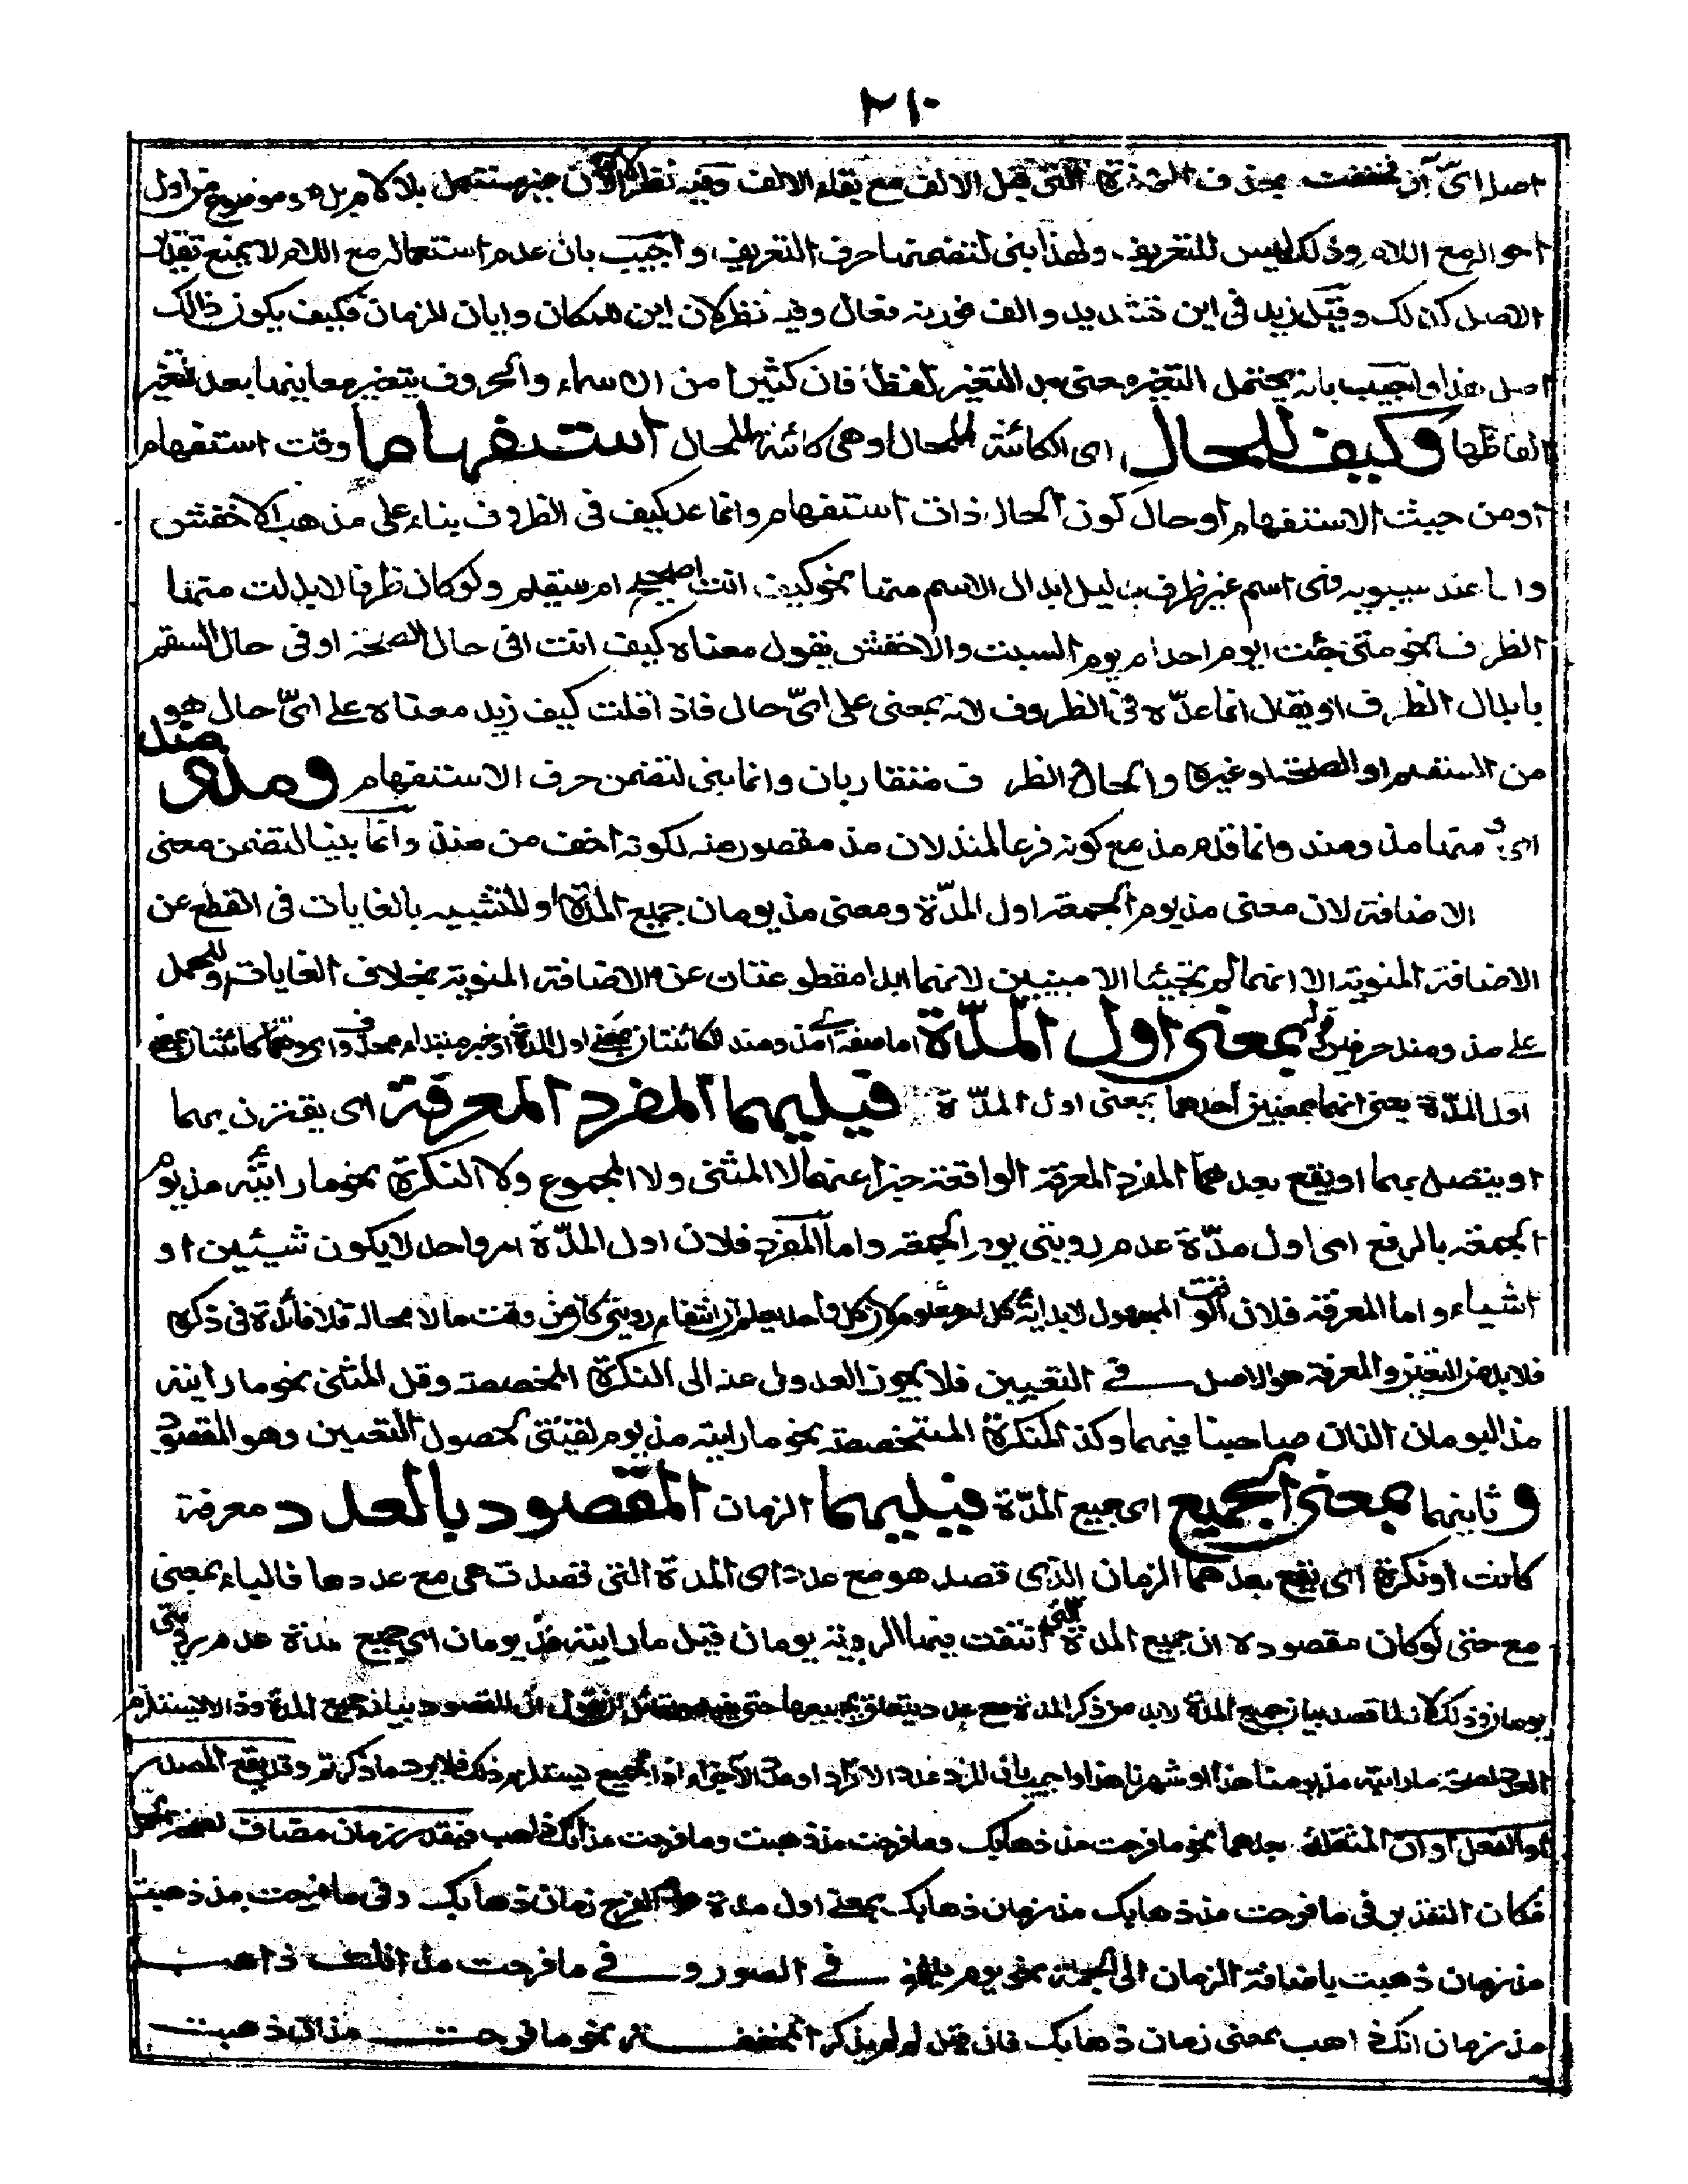 ٢١٠
اصل اى آن فخففت بحذف الهمزة التى قبل الالف مع بقاء الالف وفيه نظر لان الآن غير مستعمل بلا لام بل هو موضوع من اول
احواله مع اللام وذلك ليس للتعريف ولهذا بنى لتضمنها حرف التعريف واجيب بان عدم استعماله مع اللام لا يمنع تقدير
الاصل كذلك وقيل زيد فى اين تشديد والف فمزية فعال وفيه نظر لان اين للمكان وايان للزمان فكيف يكون ذالك
اصل هذا واجيب بانه يحتمل التغير معنى بعد التغير لفظا فان كثيرا من الاسماء والحروف يتغير معانيها بعد تغير
الفاظها وكيف للحال اى الكائنة للحال او هى كائنة للحال استفهاما وقت استفهام
او من حيث الاستفهام او حال كون الحال ذات استفهام وانما عد كيف فى الظروف بناء على مذهب الاخفش
واما عند سيبويه فهى اسم غير ظرف بدليل ابدال الاسم منها نحو كيف انت اصحيح ام سقيم ولو كان ظرفا لابدلت منها
الظرف نحو متى جئت ايوم احد ام يوم السبت والاخفش يقول معناه كيف انت افى حال الصحة او فى حال السقم
بابدال الظرف او يقال انما عدّه فى الظروف لانه بمعنى على اىّ حال فاذا قلت كيف زيد معناه على اىّ حال هو
من السقم او الصحة او غيرها والحال الظرف متقاربان وانما بنى لتضمن حرف الاستفهام ومذ ومنذ
اى ومنها مذ ومنذ وانما قدم مذ مع كونه فرعا لمنذ لان مذ مقصور منه لكونه اخف من منذ وانما بنيا لتضمن معنى
الاضافة لان معنى مذ يوم الجمعة اول المدّة ومعنى مذ يومان جميع المدّة او للتشبيه بالغايات فى القطع عن
الاضافة المنوية الا انهما لم يجيئا الا مبنيين لانهما ابدا مقطوعتان عن الاضافة المنوية بخلاف الغايات او للحمل
على مذ ومنذ حرفين بمعنى اول المدّة اما صفة اى مذ ومنذ الكائنتان بمعنى اول المدة او خبر مبتدأ محذوف اى وهما كائنتان بمعنى
اول المدّة يعنى انهما بمعنيين احدهما بمعنى اول المدّة فيليهما المفرد المعرفة اى يقترن بهما
او يتصل بهما او يقع بعدهما المفرد المعرفة الواقعة خبرا عنهما لا المثنى ولا المجموع ولا النكرة نحو ما رايته مذ يوم
الجمعة بالرفع اى اول مدّة عدم رويتى يوم الجمعة واما المفرد فلان اول المدّة امر واحد لا يكون شيئين او
اشياء واما المعرفة فلان الوقت المجهول لابداية كل امر معلوم لان كل واحد يعلم ان انتفاء رويتى كان من وقت ما لا محالة فلا فائدة فى ذكره
فلا بد من التعين والمعرفة هو الاصل فى التعيين فلا يجوز العدول عنه الى النكرة المخصصة وقل المثنى نحو ما رايته
مذ اليومان اللذان صاحبنا فيهما وكذا لنكرة المستخصصة نحو ما رايته مذ يوم لقيتنى لحصول التعيين وهو المقصود
وثانيهما بمعنى الجميع اى جميع المدّة فيليهما الزمان المقصود بالعدد معرفة
كانت او نكرة اى يقع بعدهما الزمان الذى قصد هو مع عدده اى المدة التى قصدت هى مع عددها فالباء بمعنى
مع حتى لو كان مقصوده ان جميع المدة التى انتفت فيها الروية يومان قيل ما رايته مذ يومان اى جميع مدّة عدم رويتى
يومان وذلك لانه لما قصد بيان جميع المدة لابد من ذكر المدة مع عدد يتعلق بجميعها حتى يفيد ولقائل ان يقول ان المقصود بيان جميع المدة وذالا يستلزم
العدد لصحة ما رايته مذ يومنا هذا او شهرنا هذا واجيب بان المراد عدد الافراد او عدد الاجزاء اذ الجميع يستلزم ذلك فلا يرد ما ذكرتم وقد يقع المصدر
او الفعل او ان المثقلة بعدهما نحو ما خرجت مذ ذهابك وما خرجت مذ ذهبت وما خرجت مذ انك ذاهب فيقدر زمان مضاف لصحة الحمل
فكان التقدير فى ما خرجت مذ ذهابك مذ زمان ذهابك بمعنى اول مدة عدم الخروج زمان ذهابك وفى ما خرجت مذ ذهبت
مذ زمان ذهبت باضافة الزمان الى الجملة نحو يوم ينفخ فى الصور وفى ما خرجت مذ انك ذاهب
مذ زمان انك ذاهب بمعنى زمان ذهابك فان قيل لم لم يذكر المخففة نحو ما خرجت مذ ان ذهبت